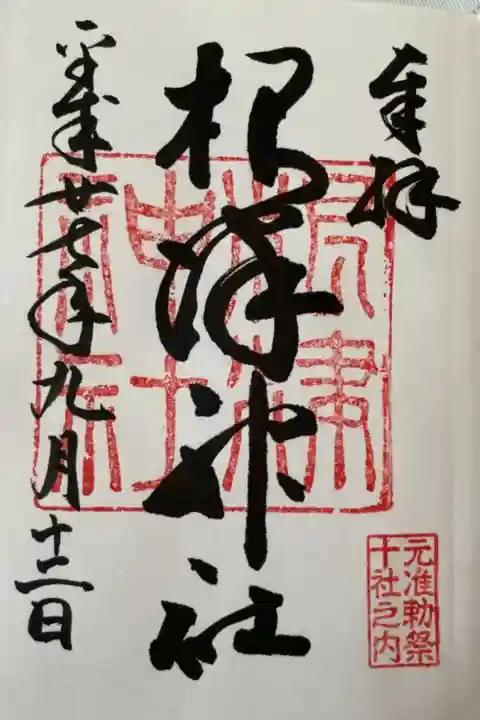 奉拝
根津神社
平成廿七年九月十二日
根津
神社
元准勅祭
十社之内